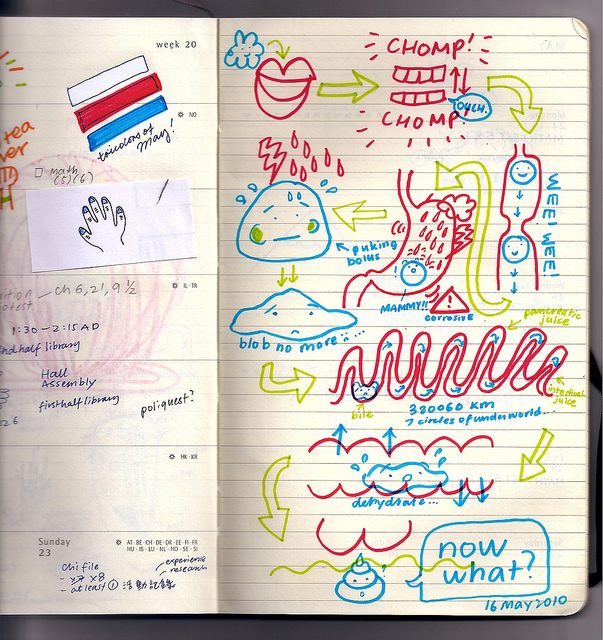 week 20
tea
ver
tricolors of
may!
NO
math
(5)(6)
ch 6, 21, 9 1/2
IL·TR
1:30 – 2:15 AD
half library
Hall
Assembly
first half library
poliquest?
HK·KR
Sunday
23
AT·BE·CH·DE·DK·EE·FI·FR
HU·IS·LU·NL·NO·SE·SI
chi file
- x7 x8
- at least ① 活動記錄
experience
research
CHOMP!
OUCH.
CHOMP!
WEE! WEE!
puking
bolus
MAMMY!!
corrosive
blob no more...
pancreatic
juice
intestinal
juice
bile
320060 KM
7 circles of underworld...
dehydrate...
now
what?
16 MAY 2010